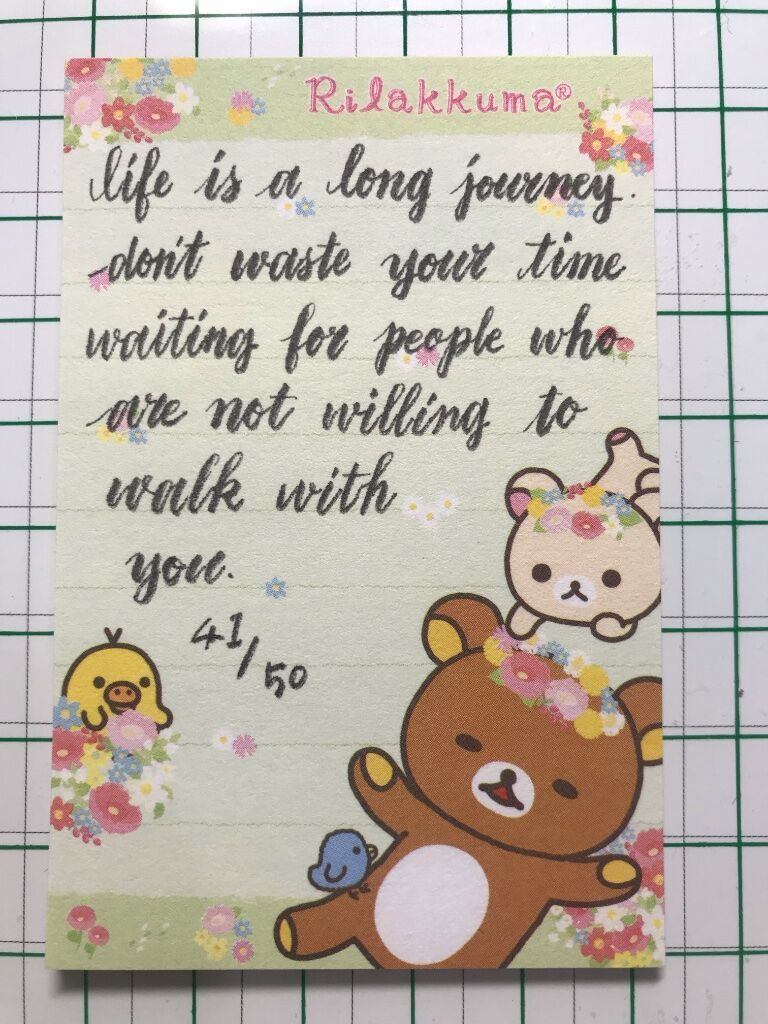 Rilakkuma®
life is a long journey.
don't waste your time
waiting for people who
are not willing to
walk with
you.
41/50